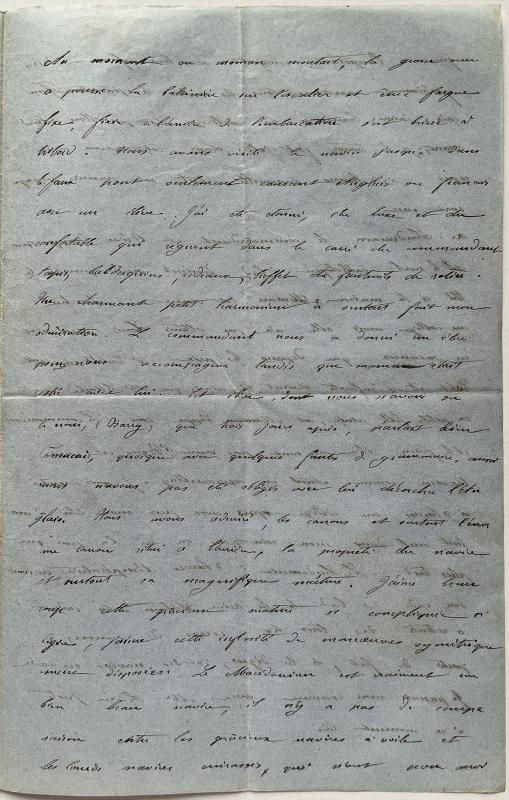 Au moment où maman montait, la grosse mer
a poussé la baleinière sur l'escalier et une
fixe, fixée à l'arrière de l'embarcation s'est brisée à
tribord. Nous avons visité le navire jusque dans
le faux pont seulement causant anglais ou français
avec un élève. J'ai été étonné, du luxe et du
confortable qui règnent dans le carré du commandant
Tapis, rideaux, buffet des fauteuils de
Un charmant petit harmonium a surtout fait mon
admiration. Le commandant nous a donné un élève
pour nous accompagner tandis que maman était
restée avec lui. Cet élève, dont nous n'avons su
le nom, (Barry) que trois jours après, parlant bien
français, quoique avec quelques fautes de grammaire, aussi
nous n'avons pas été obligés avec lui d'écorcher l'An
glais. Nous avons admiré, les canons et surtout l'énor
me canon situé à l'arrière, la propreté du navire
et surtout sa magnifique mâture. J'aime beau
coup cette gracieuse mâture si compliquée si
j'aime cette infinité de manoeuvres symétrique
ment disposées. Le Macedonian est vraiment un
bien beau navire, il n'y a pas de compa
raison entre les gracieux navires à voile et
les lourds navires cuirassés, qui n'ont pour